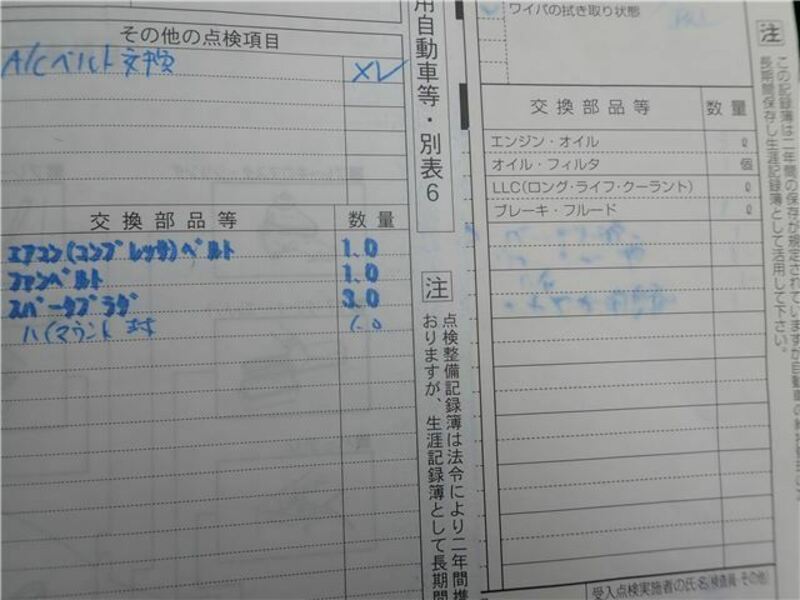 その他の点検項目
A/Cベルト交換
交換部品等 数量
エアコン(コンプレッサ)ベルト 1.0
ファンベルト 1.0
スパークプラグ 3.0
ハイマウント 1.0
用自動車等・別表6
注
点検整備記録簿は法令により二年間携
おりますが、生涯記録簿として長期間
ワイパの拭き取り状態
交換部品等 数量
エンジン・オイル ℓ
オイル・フィルタ 個
LLC(ロング・ライフ・クーラント) ℓ
ブレーキ・フルード ℓ
受入点検実施者の氏名(検査員・その他)
注
この記録簿は二年間の保存が規定されていますが自動車の
長期間保存し生涯記録簿として活用して下さい。